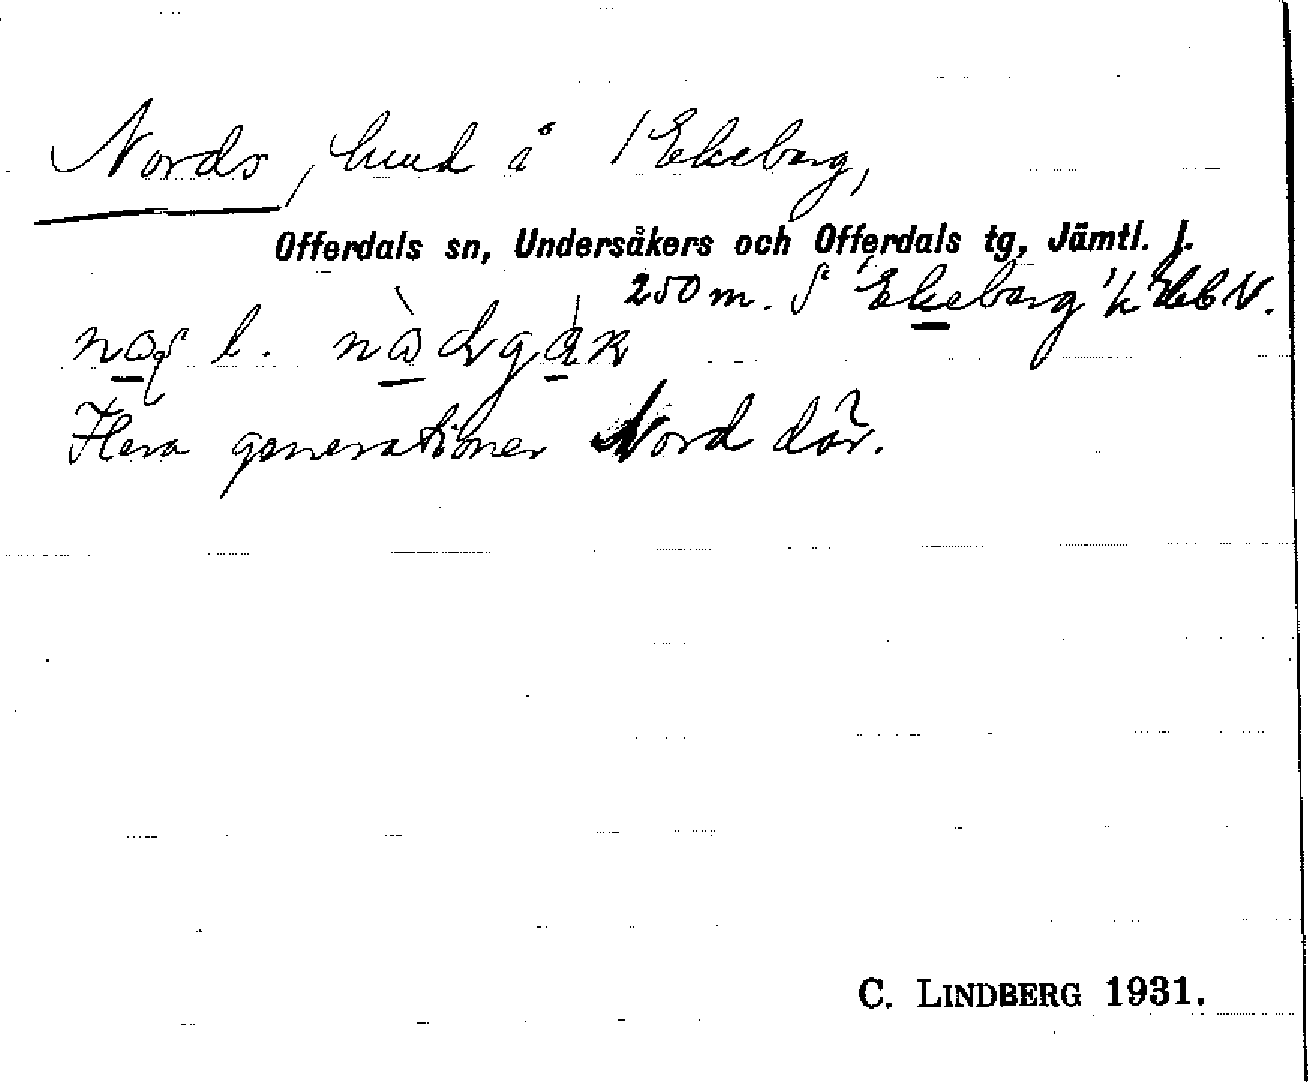 Nords, hemd å 1 Ekeberg,
Offerdals sn, Undersåkers och Offerdals tg, Jämtl. l.
250 m. S "Ekeberg" 
l. 
Flera generationer Nord där.
C. LINDBERG 1931.